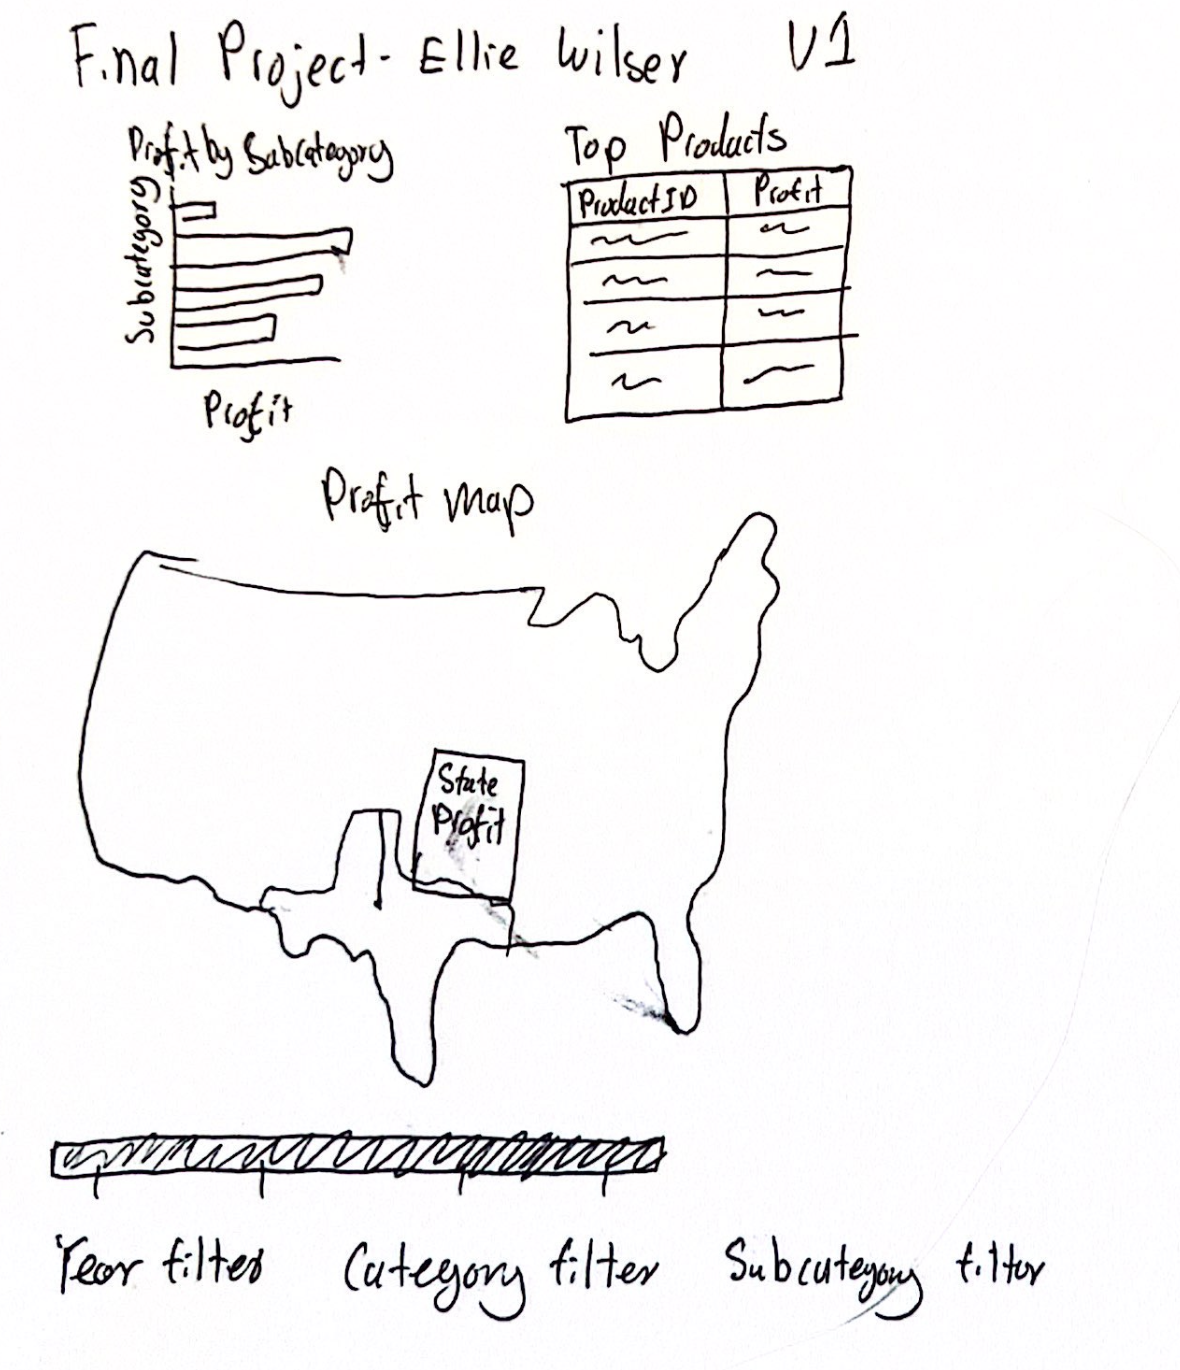 Final Project - Ellie Wilser V1
Profit by Subcategory
Subcategory
Profit
Top Products
ProductID Profit
Profit Map
State
Profit
Year filter Category filter Subcategory filter